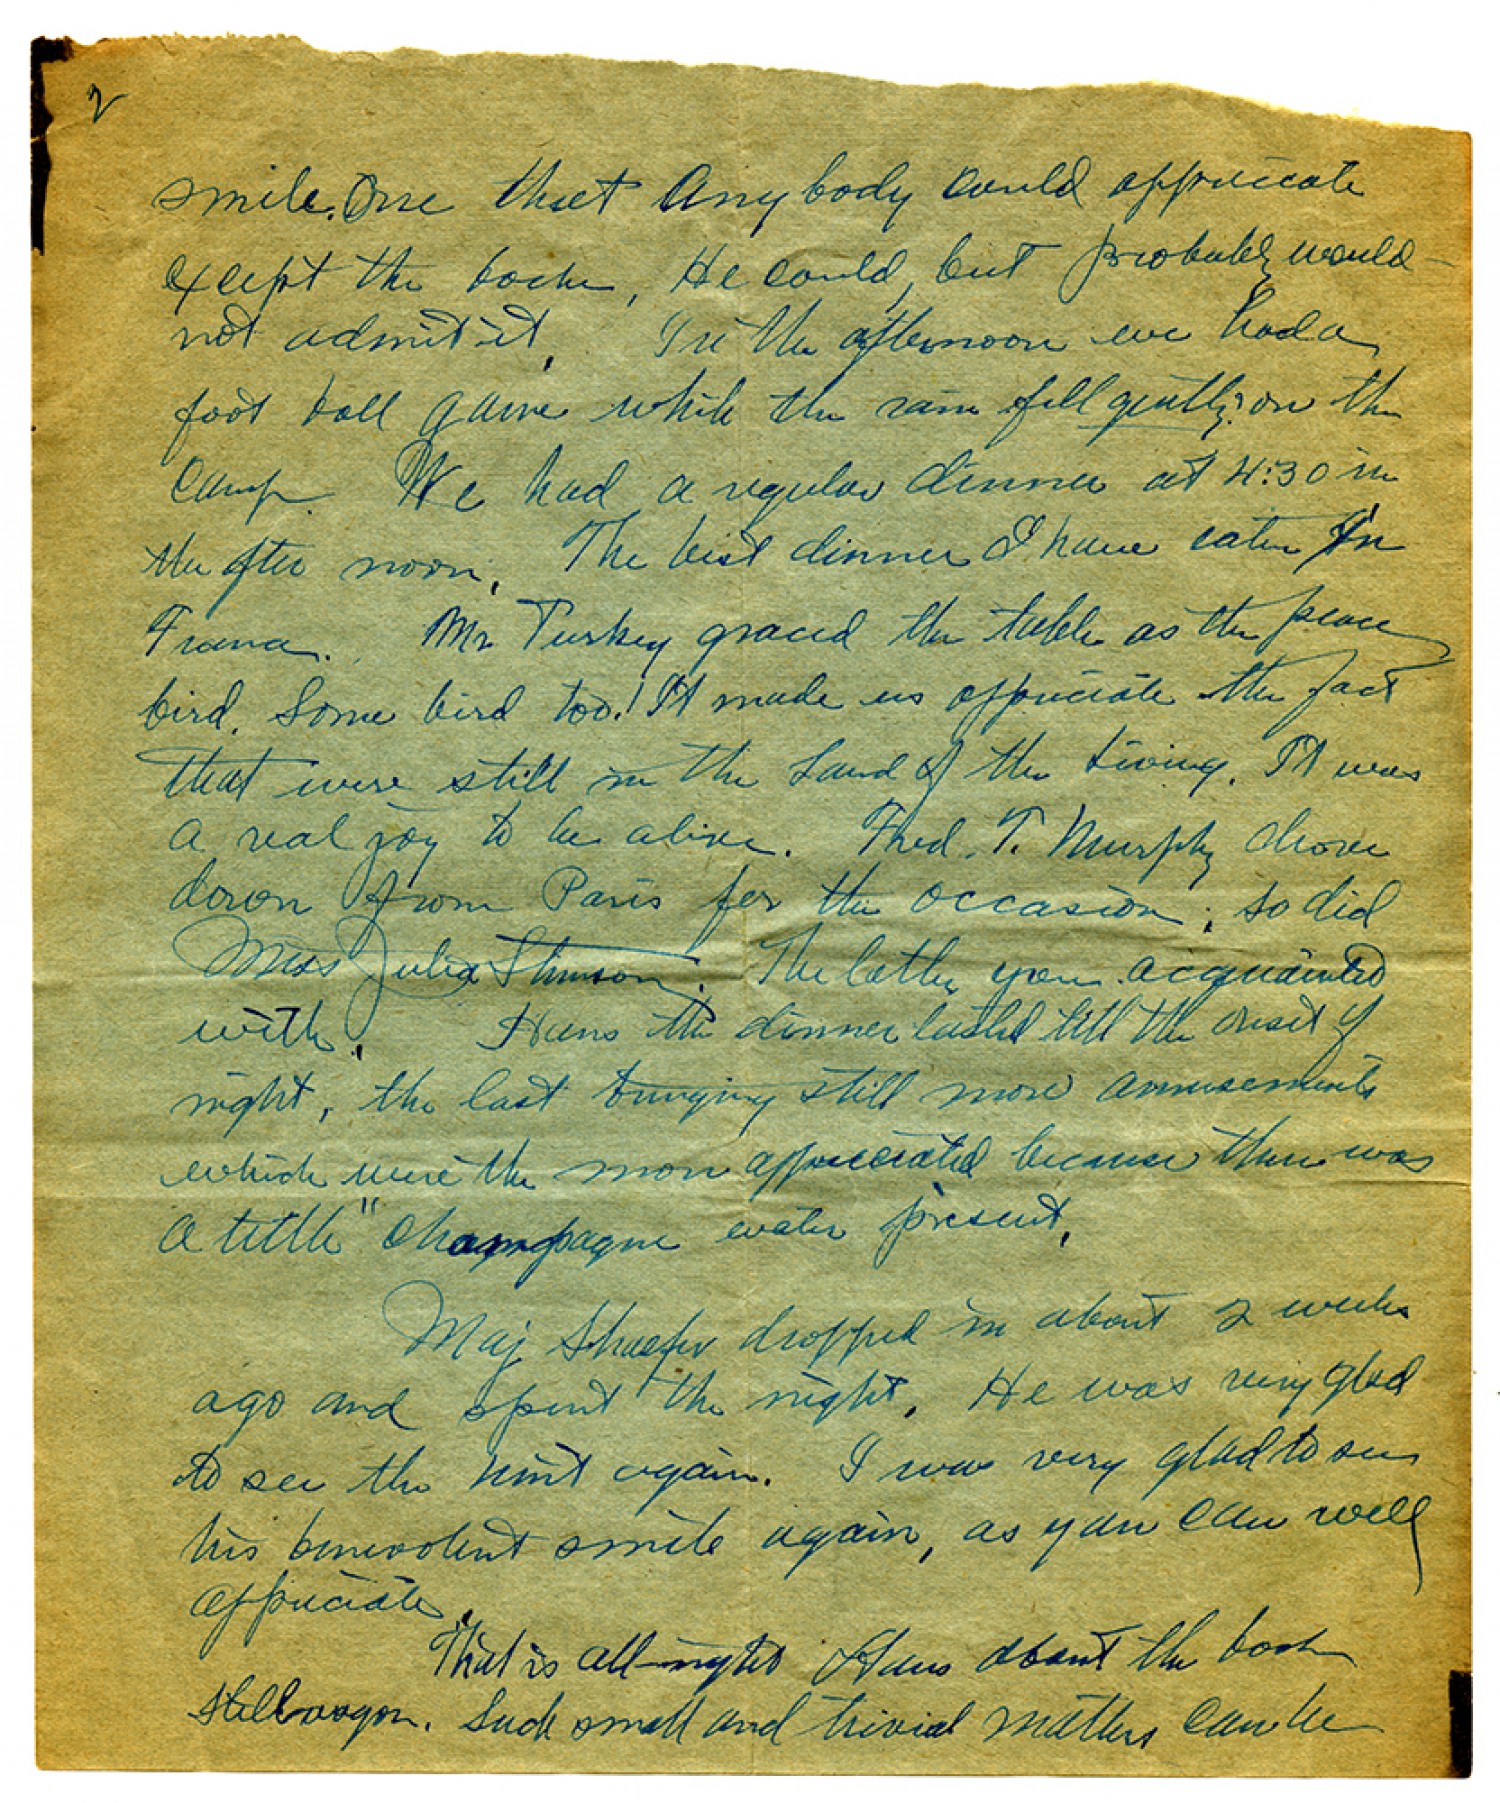 2
smile. One that Anybody could appreciate
except the boche, He could, but probably would
not admit it. In the afternoon we had a
foot ball game while the rain fell gently on the
camp. We had a regular dinner at 4:30 in
the after noon. The best dinner I have eaten in
France. Mr Turkey graced the table as the peace
bird. Some bird too! It made us appreciate the fact
that were still in the Land of the Living. It was
a real joy to be alive. Fred. T. Murphy drove
down from Paris for the occasion, so did
Miss Julia Stimson. The latter your acquainted
with. Hans the dinner lasted till the onset of
night, the last bringing still more amusements
which were the more appreciated because there was
a little "champagne water present.
Maj Shaefer dropped in about 2 weeks
ago and spent the night. He was very glad
to see the unit again. I was very glad to see
his benevolent smile again, as you can well
appreciate.
That is all right Hans about the boche
. Such small and trivial matters can be